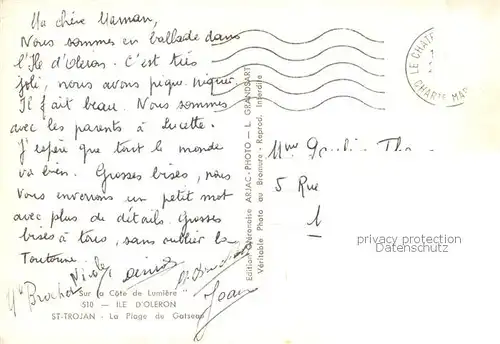 Ma chère Maman,
Nous sommes en ballade dans
l'Ile d'Oleron. C'est très
joli, nous avons pique-niqué
Il fait beau. Nous sommes
avec les parents à Lucette.
J'espère que tout le monde
va bien. Grosses bises, nous
vous enverrons un petit mot
avec plus de détails. Grosses
bises à tous, sans oublier la
Toutoune.
Nicole
Sur la Côte de Lumière
510 — ILE D'OLERON
ST-TROJAN - La Plage de Gatseau
Jean
Editions Véronaise ARJAC-PHOTO — L. GRANDSART
Véritable Photo au Bromure - Reprod. Interdite
LE CHATE
CHARTE MAR
Mme
5 Rue
privacy protection
oldthing.de